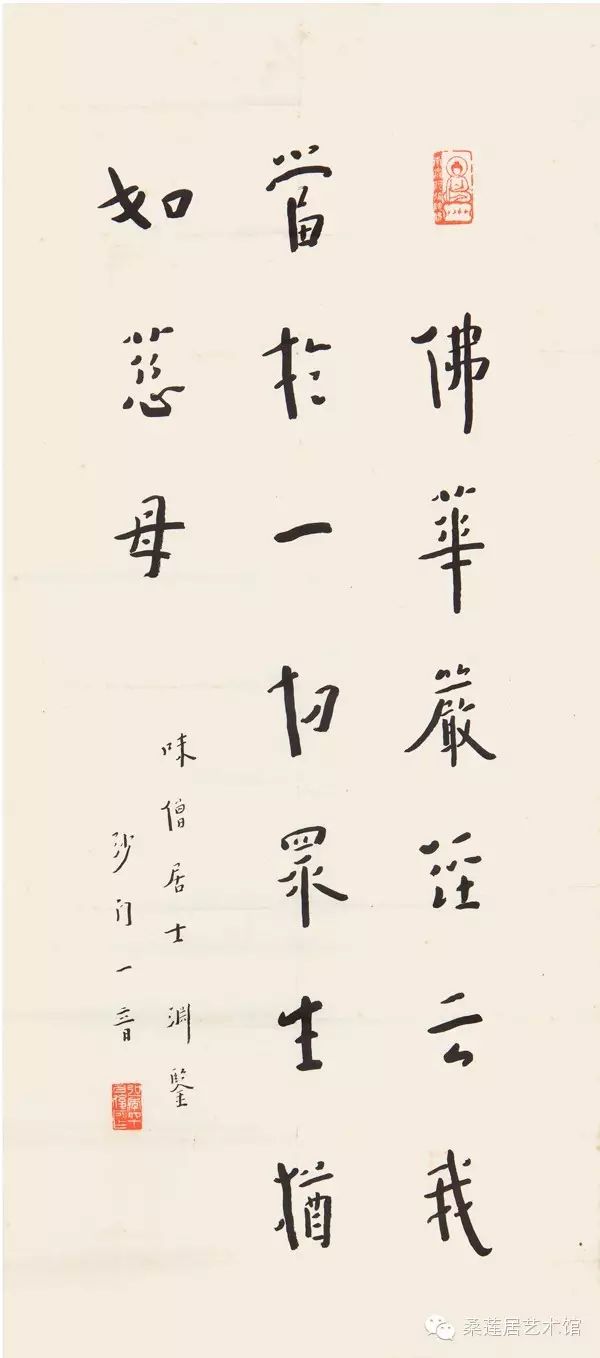 佛華嚴経云我
當於一切眾生猶
如慈母
味僧居士淵鑒
沙门一音
桑莲居艺术馆